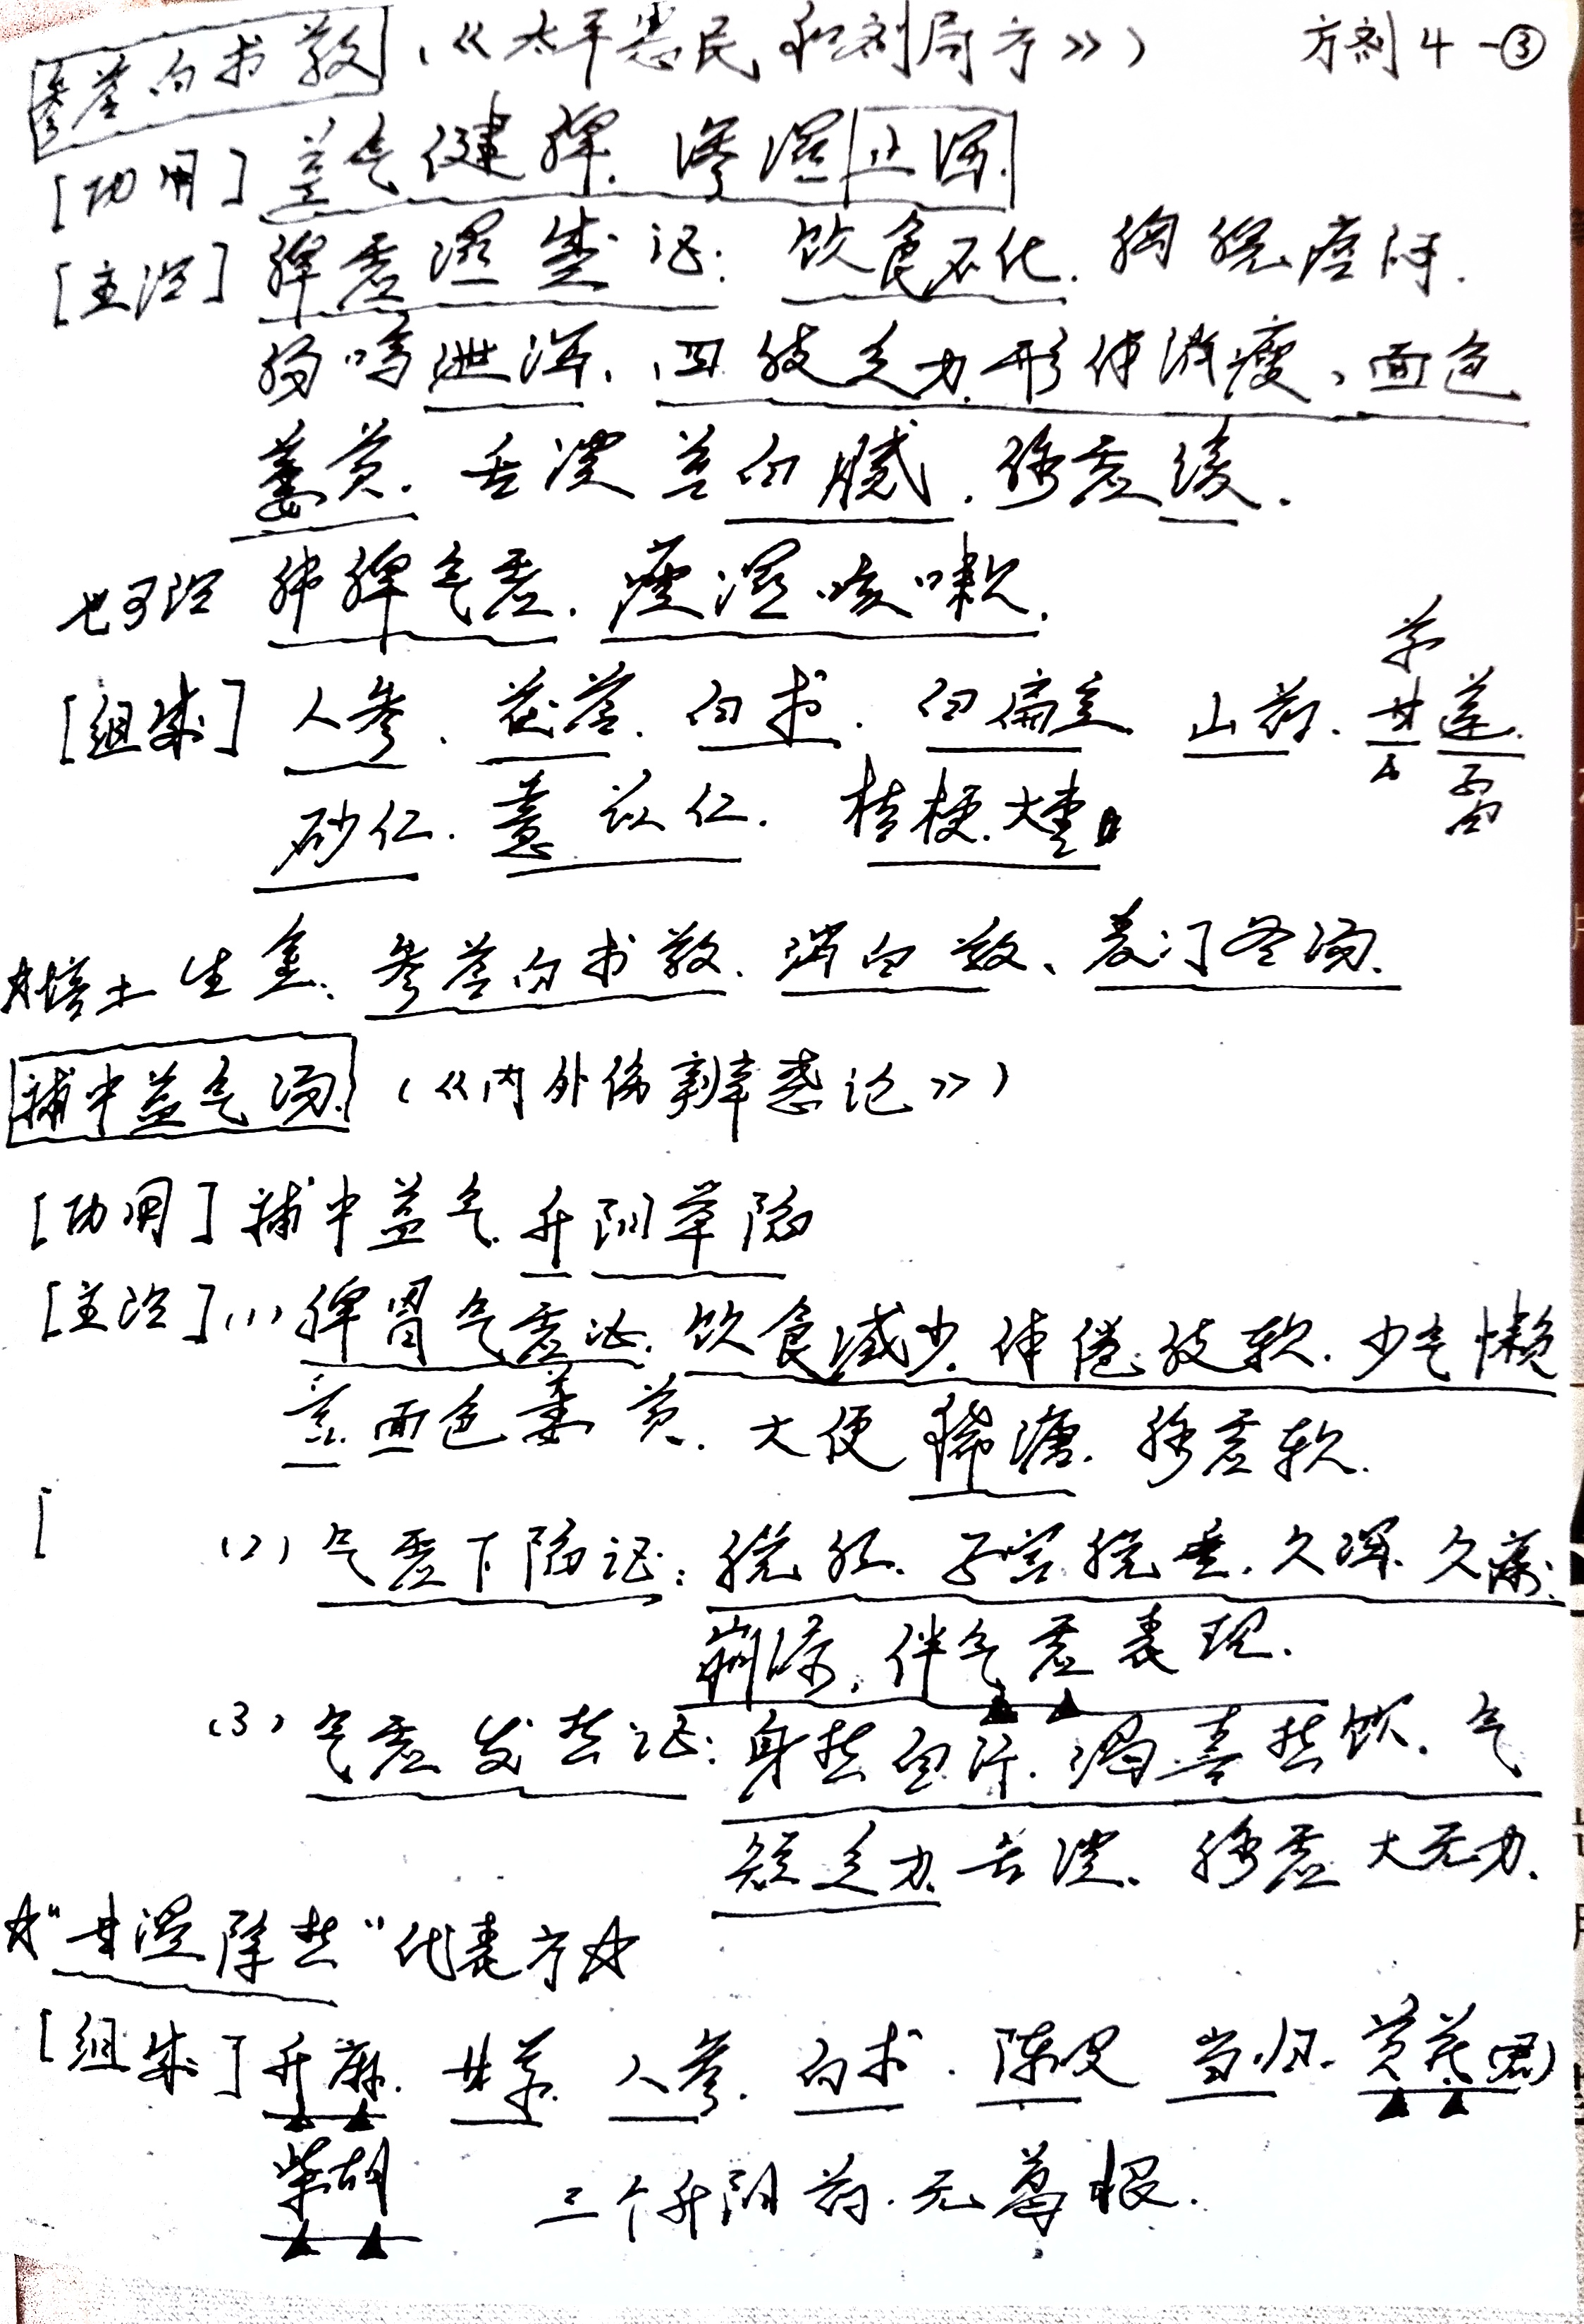 参苓白术散（《太平惠民和剂局方》） 方剂4-③
[功用] 益气健脾.渗湿止泻.
[主治] 脾虚湿盛证:饮食不化.胸脘痞闷.
肠鸣泄泻、四肢乏力.形体消瘦、面色
萎黄.舌淡苔白腻.脉虚缓.
也可治 肺脾气虚.痰湿咳嗽.
[组成] 人参、茯苓.白术.白扁豆 山药.甘草 莲子肉.
砂仁.薏苡仁.桔梗.大枣
☆培土生金:参苓白术散.泻白散、麦门冬汤.
补中益气汤.（《内外伤辨惑论》）
[功用] 补中益气.升阳举陷
[主治] (1)脾胃气虚证.饮食减少.体倦肢软.少气懒
言.面色萎黄.大便稀溏.脉虚软.
[ (2)气虚下陷证:脱肛.子宫脱垂.久泻.久痢.
崩漏.伴气虚表现.
(3)气虚发热证:身热自汗.渴喜热饮.气
短乏力.舌淡.脉虚大无力.
☆"甘温除热"代表方☆
[组成] 升麻.甘草.人参.白术.陈皮 当归.黄芪(君)
柴胡 三个升阳药.无葛根.